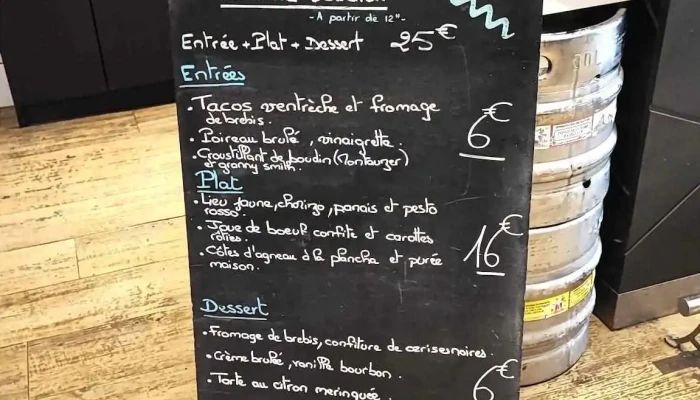 - A partir de 12h -
Entrée + Plat + Dessert 25€
Entrées
• Tacos ventrèche et fromage
de brebis.
• Poireau brulé, vinaigrette.
• Croustillant de boudin (Montauzer)
et granny smith.
6€
Plat
• Lieu jaune, chorizo, panais et pesto
rosso.
• Joue de boeuf confite et carottes
roties.
• Côtes d'agneau à la plancha et purée
maison.
16€
Dessert
• Fromage de brebis, confiture de cerises noires.
• Crème brulée, vanille bourbon.
• Tarte au citron meringuée.
6€